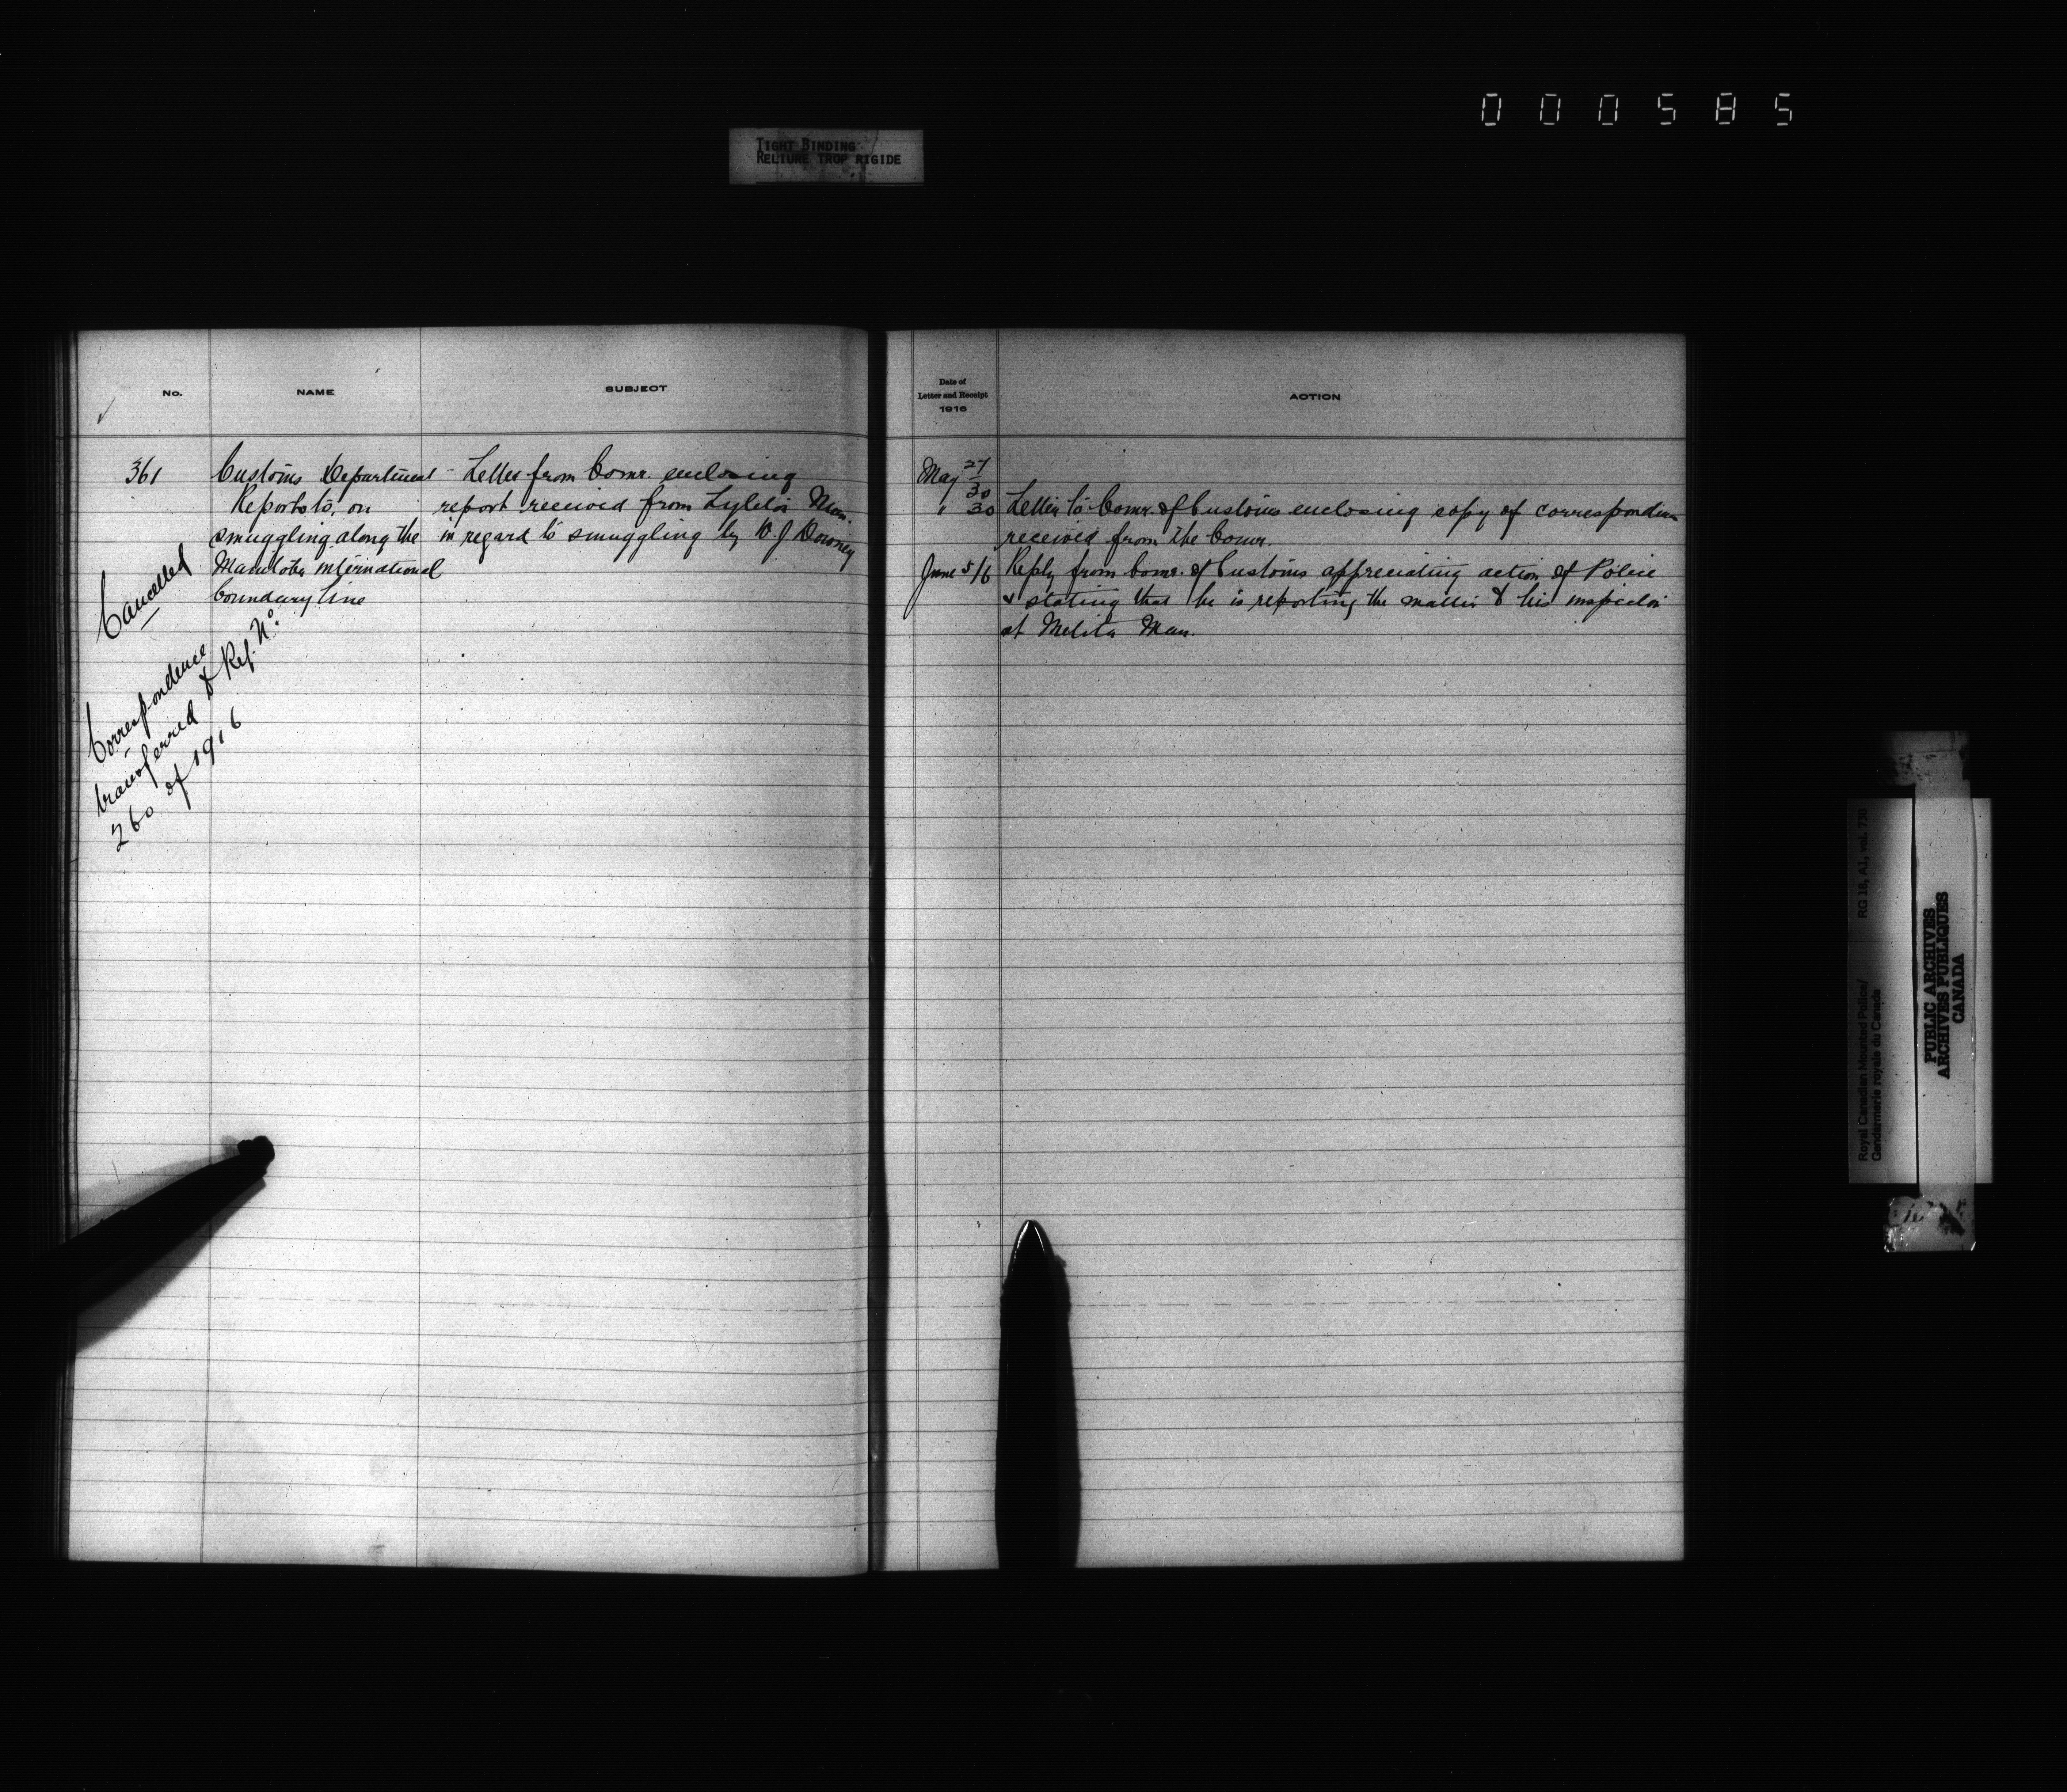 000585
TIGHT BINDING
RELIURE TROP RIGIDE
No.
NAME
SUBJECT
361
Customs Department
Reports to, on
smuggling along the
Manitoba international
boundary line
Cancelled
Correspondence
transferred to Ref. No.
260 of 1916
- Letter from Comr. enclosing
report received from Lyleton Man.
in regard to smuggling by W. J Downey
Date of
Letter and Receipt
1916
ACTION
May 27
30
" 30 Letter to Comr. of Customs enclosing copy of corresponden
received from the Comr.
June 5/6 Reply from Comr. of Customs appreciating action of Police
& stating that he is reporting the matter to his inspector
at Melita Man.
Royal Canadian Mounted Police/
Gendarmerie royale du Canada
RG 18, A1, vol. 730
PUBLIC ARCHIVES
ARCHIVES PUBLIQUES
CANADA